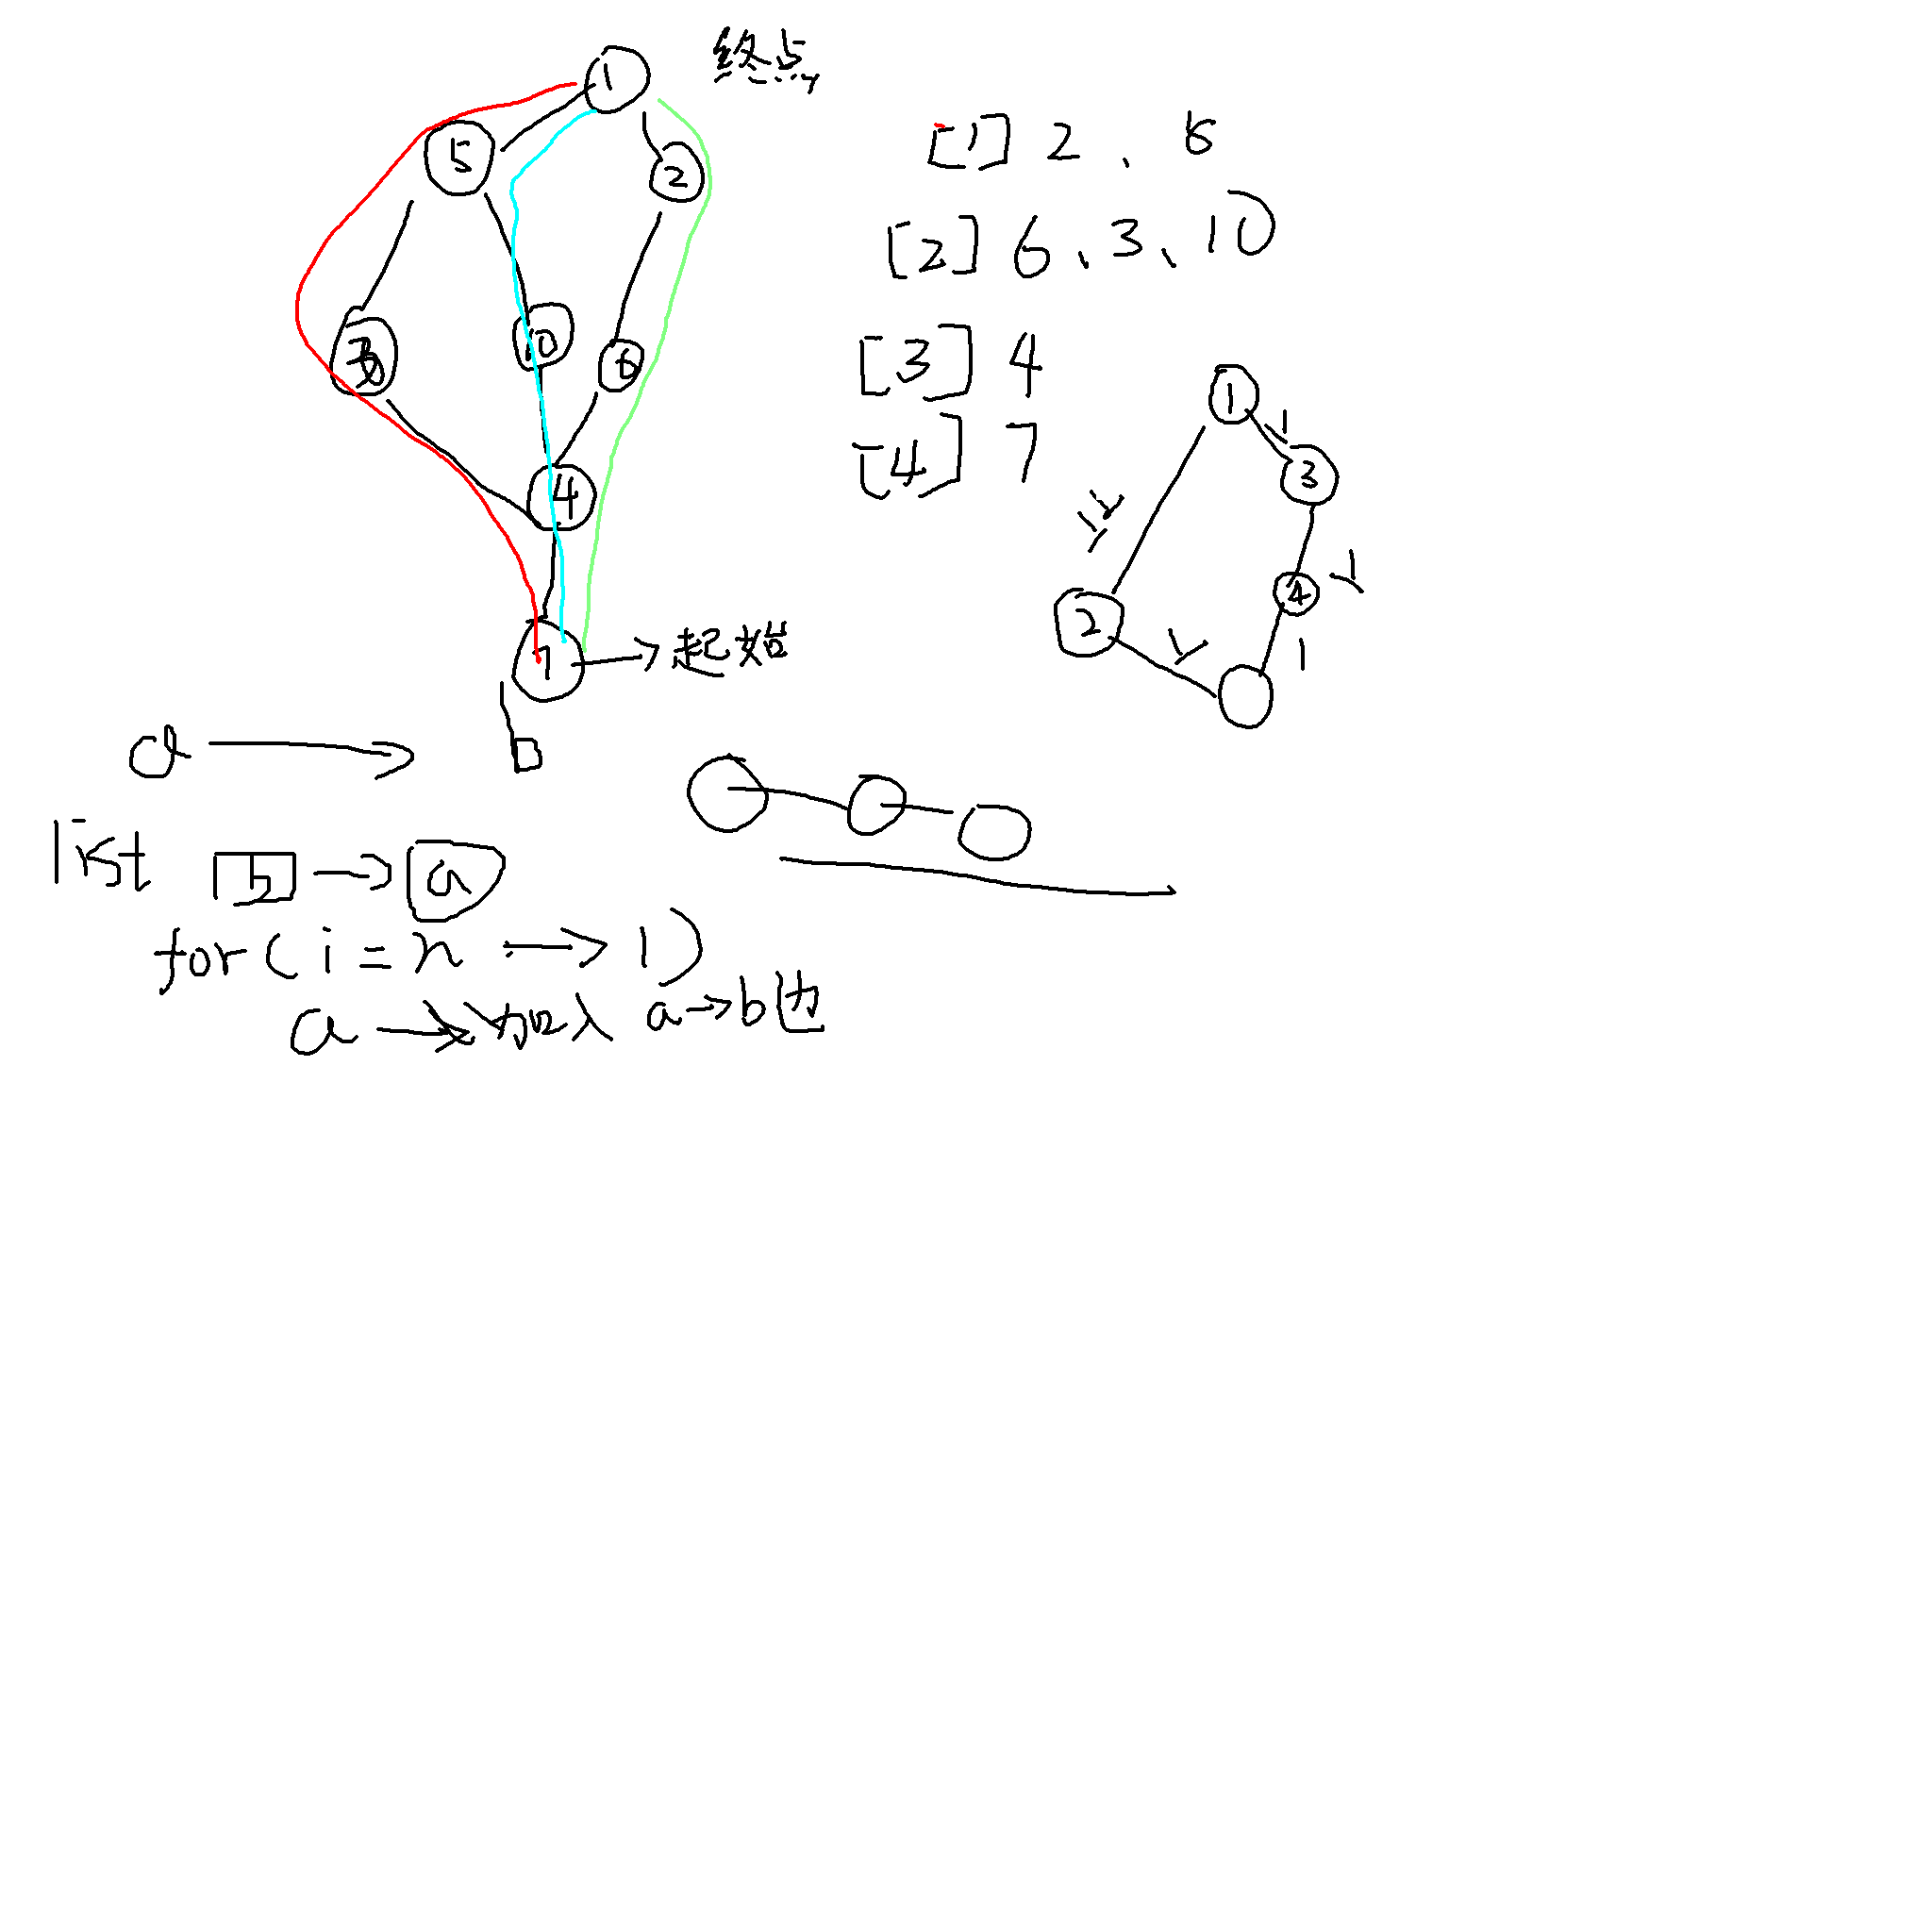 终点
1
5
2
10
6
4
7
起始
[1] 2、5
[2] 6、3、10
[3] 4
[4] 7
1
1
3
4
1
2
a
b
list b → a
for(i=n → 1)
a → 加入 a→b边